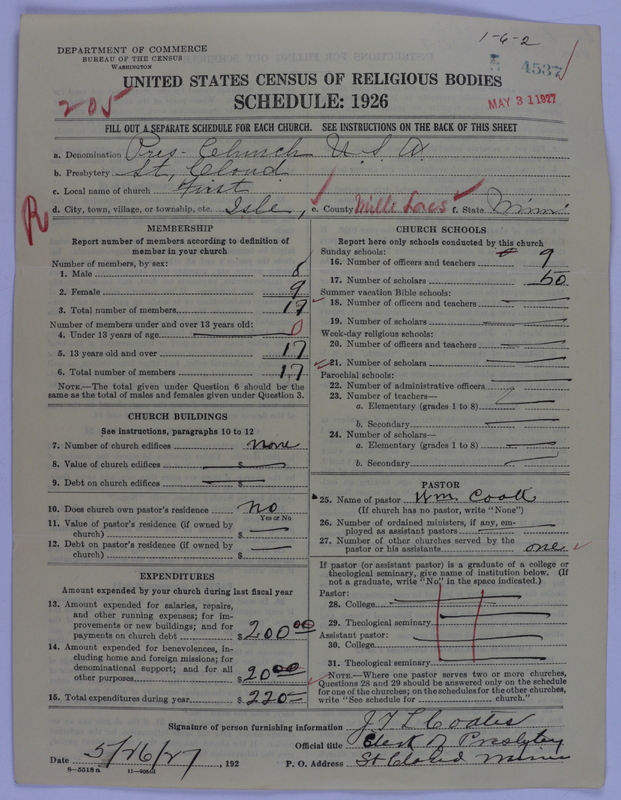 1-6-2
DEPARTMENT OF COMMERCE
BUREAU OF THE CENSUS
WASHINGTON
4537
UNITED STATES CENSUS OF RELIGIOUS BODIES
205
SCHEDULE: 1926
MAY 31 1927
FILL OUT A SEPARATE SCHEDULE FOR EACH CHURCH. SEE INSTRUCTIONS ON THE BACK OF THIS SHEET
a. Denomination Pres- Church U. S. A.
b. Presbytery St. Cloud
c. Local name of church First
d. City, town, village, or township, etc. Isle, e. County Mille Lacs f. State Minn
R
MEMBERSHIP
Report number of members according to definition of
member in your church
Number of members, by sex:
1. Male 8
2. Female 9
3. Total number of members 17
Number of members under and over 13 years old:
4. Under 13 years of age 0
5. 13 years old and over 17
6. Total number of members 17
NOTE.—The total given under Question 6 should be the
same as the total of males and females given under Question 3.
CHURCH BUILDINGS
See instructions, paragraphs 10 to 12
7. Number of church edifices none
8. Value of church edifices $
9. Debt on church edifices $
10. Does church own pastor's residence? No
Yes or No
11. Value of pastor's residence (if owned by
church) $
12. Debt on pastor's residence (if owned by
church) $
EXPENDITURES
Amount expended by your church during last fiscal year
13. Amount expended for salaries, repairs,
and other running expenses; for im-
provements or new buildings; and for
payments on church debt $ 200 00
14. Amount expended for benevolences, in-
cluding home and foreign missions; for
denominational support; and for all
other purposes 20 00
15. Total expenditures during year $ 220-
CHURCH SCHOOLS
Report here only schools conducted by this church
Sunday schools:
16. Number of officers and teachers 9
17. Number of scholars 60
Summer vacation Bible schools:
18. Number of officers and teachers
19. Number of scholars
Week-day religious schools:
20. Number of officers and teachers
21. Number of scholars
Parochial schools:
22. Number of administrative officers
23. Number of teachers—
a. Elementary (grades 1 to 8)
b. Secondary
24. Number of scholars—
a. Elementary (grades 1 to 8)
b. Secondary
PASTOR
25. Name of pastor Wm.
(If church has no pastor, write "None")
26. Number of ordained ministers, if any, em-
ployed as assistant pastors
27. Number of other churches served by the
pastor or his assistants one
If pastor (or assistant pastor) is a graduate of a college or
theological seminary, give name of institution below. (If
not a graduate, write "No" in the space indicated.)
Pastor:
28. College
29. Theological seminary
Assistant pastor:
30. College
31. Theological seminary
NOTE.—Where one pastor serves two or more churches,
Questions 28 and 29 should be answered only on the schedule
for one of the churches; on the schedules for the other churches,
write "See schedule for church."
Signature of person furnishing information J. T. L. Coates
Official title Clerk of Presbytery
Date 5/26/27, 192 P. O. Address St Cloud Minn
8-5518a 11-